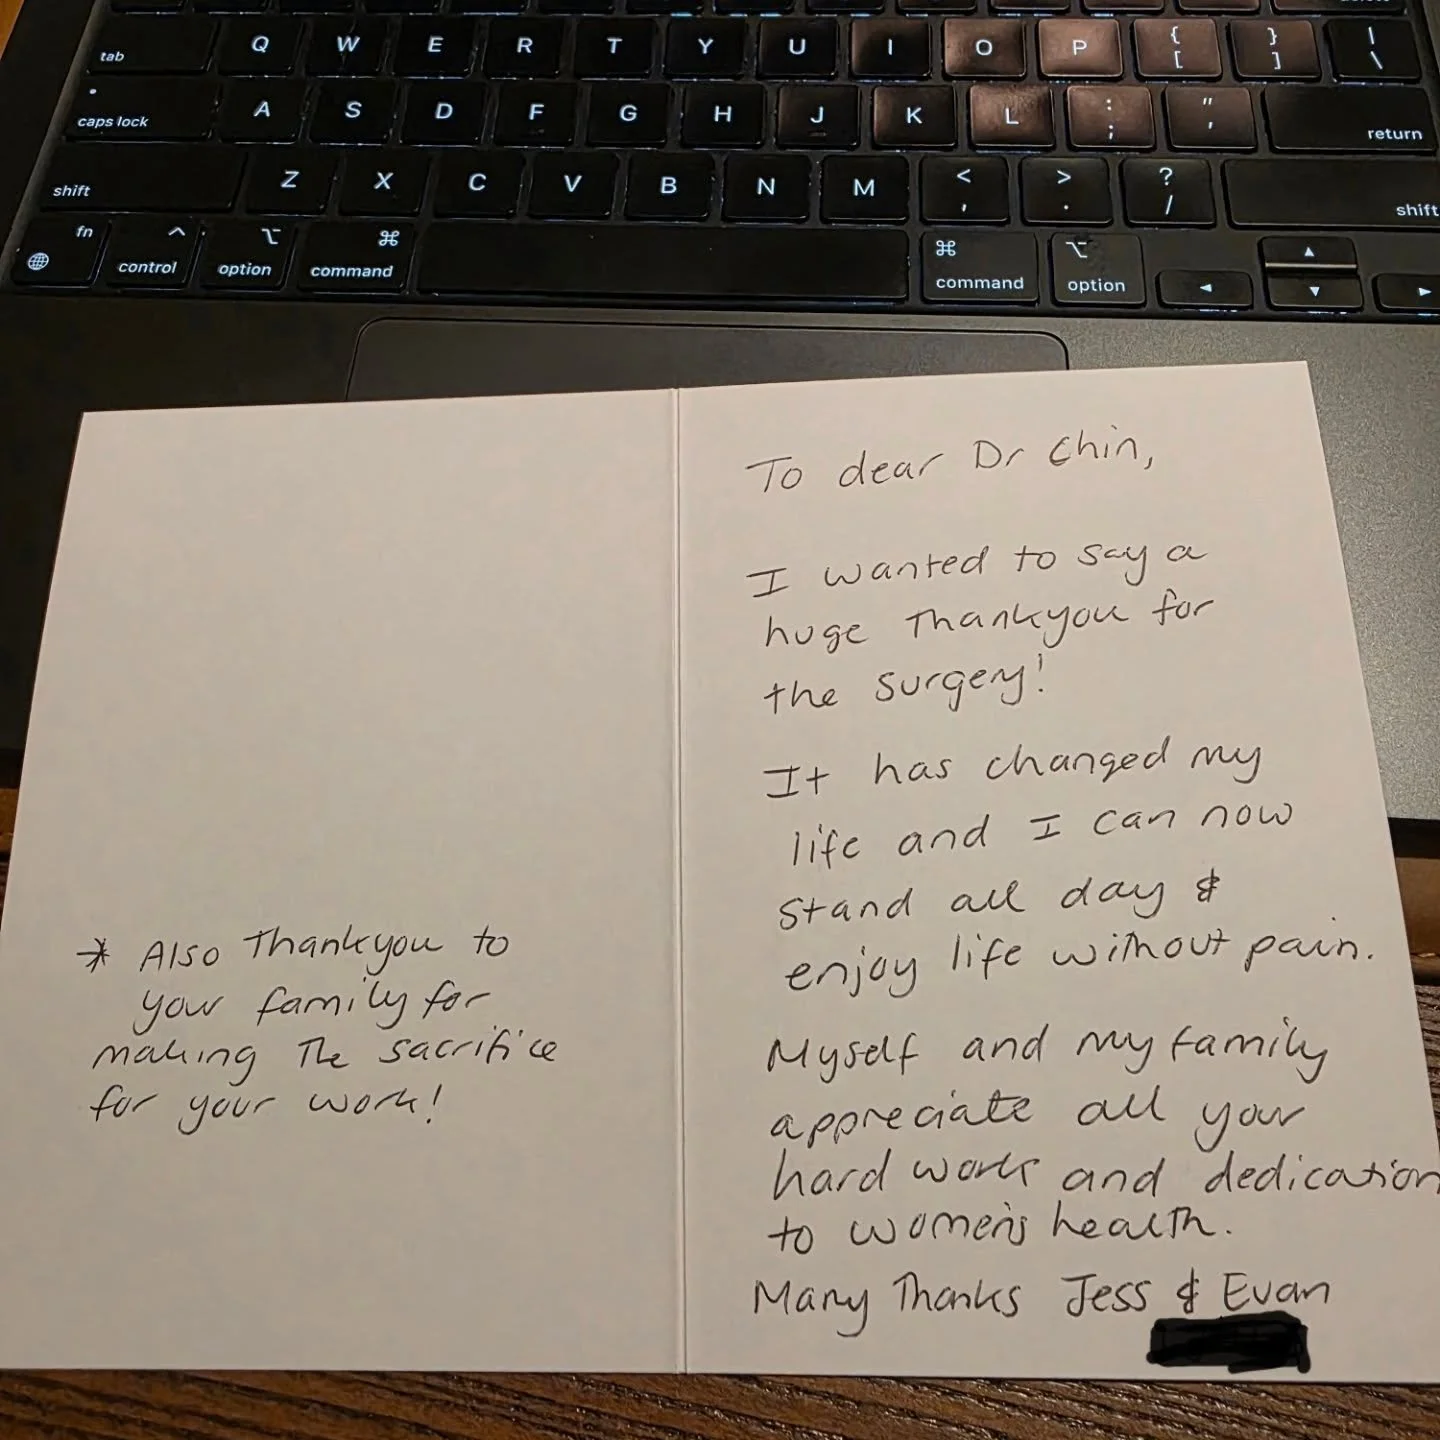 delete
tab Q W E R T Y U I O P { [ } ] | \
caps lock A S D F G H J K L : ; " ' return
shift Z X C V B N M < , > . ? / shift
fn ^ control ⌥ option ⌘ command ⌘ command ⌥ option ◄ ▲ ▼ ►
* Also Thankyou to
your family for
making The sacrifice
for your work!
To dear Dr Chin,
I wanted to say a
huge Thankyou for
the surgery!
It has changed my
life and I can now
stand all day &
enjoy life without pain.
Myself and my family
appreciate all your
hard work and dedication
to women's health.
Many Thanks Jess & Evan